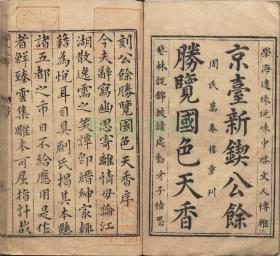 學海遺珠玩味中啟文人博雅
京臺新鍥公餘
周氏萬卷樓重刊
勝覽國色天香
藝林說錦披讀處動才子情思
刻公餘勝覽國色天香序
今夫辭寫幽思寄離情毋論江
湖散逸需之笑譚即縉紳家輒
藉為悅耳目具剞氏揭其本懸
諸五都之市日不給應用是作
者鮮臻雲集雕本可屈指計哉